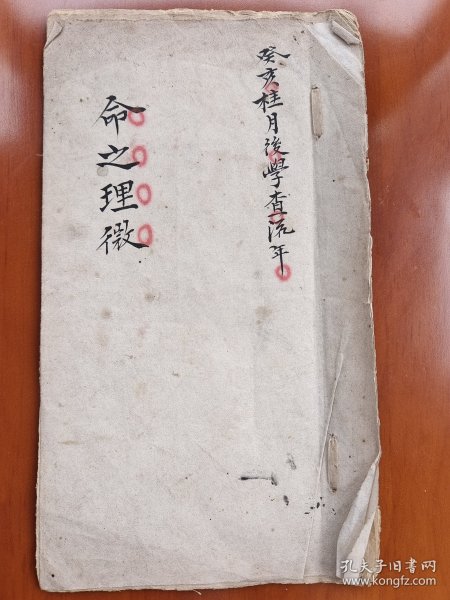 癸亥桂月後學查流年
命之理微
孔夫子旧书网
www.kongfz.com